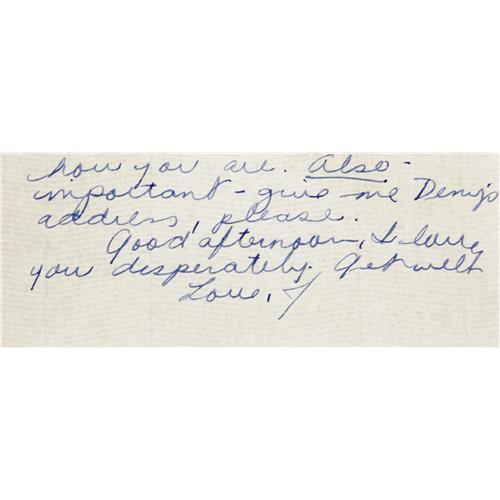 how you are. Also -
important - give me Deny's
address, please.
Good afternoon, I love
you disperately. Get well
Love, J